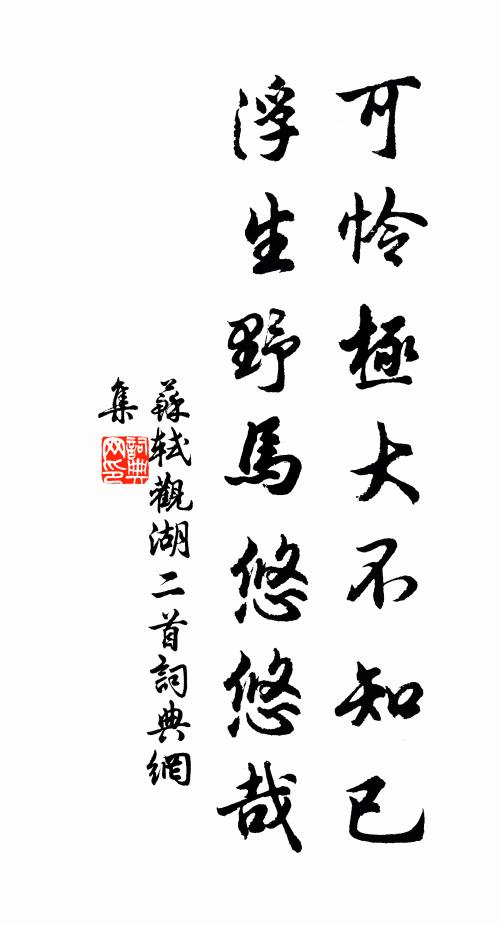 可憐極大不知已
浮生野馬悠悠哉
蘇軾觀湖二首詞典網
集
詞典
网印